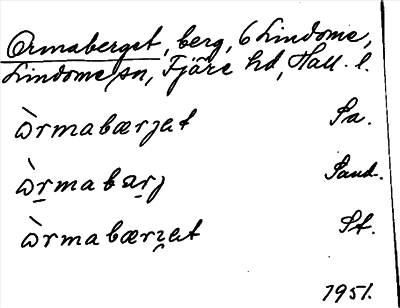 Ormaberget, berg, 6 Lindome,
Lindome sn, Fjäre hd, Hall. l.
ὼrmabærjat Sa.
ὼr̠mabær̠j Sand.
ὼrmabærʒat St.
1951.